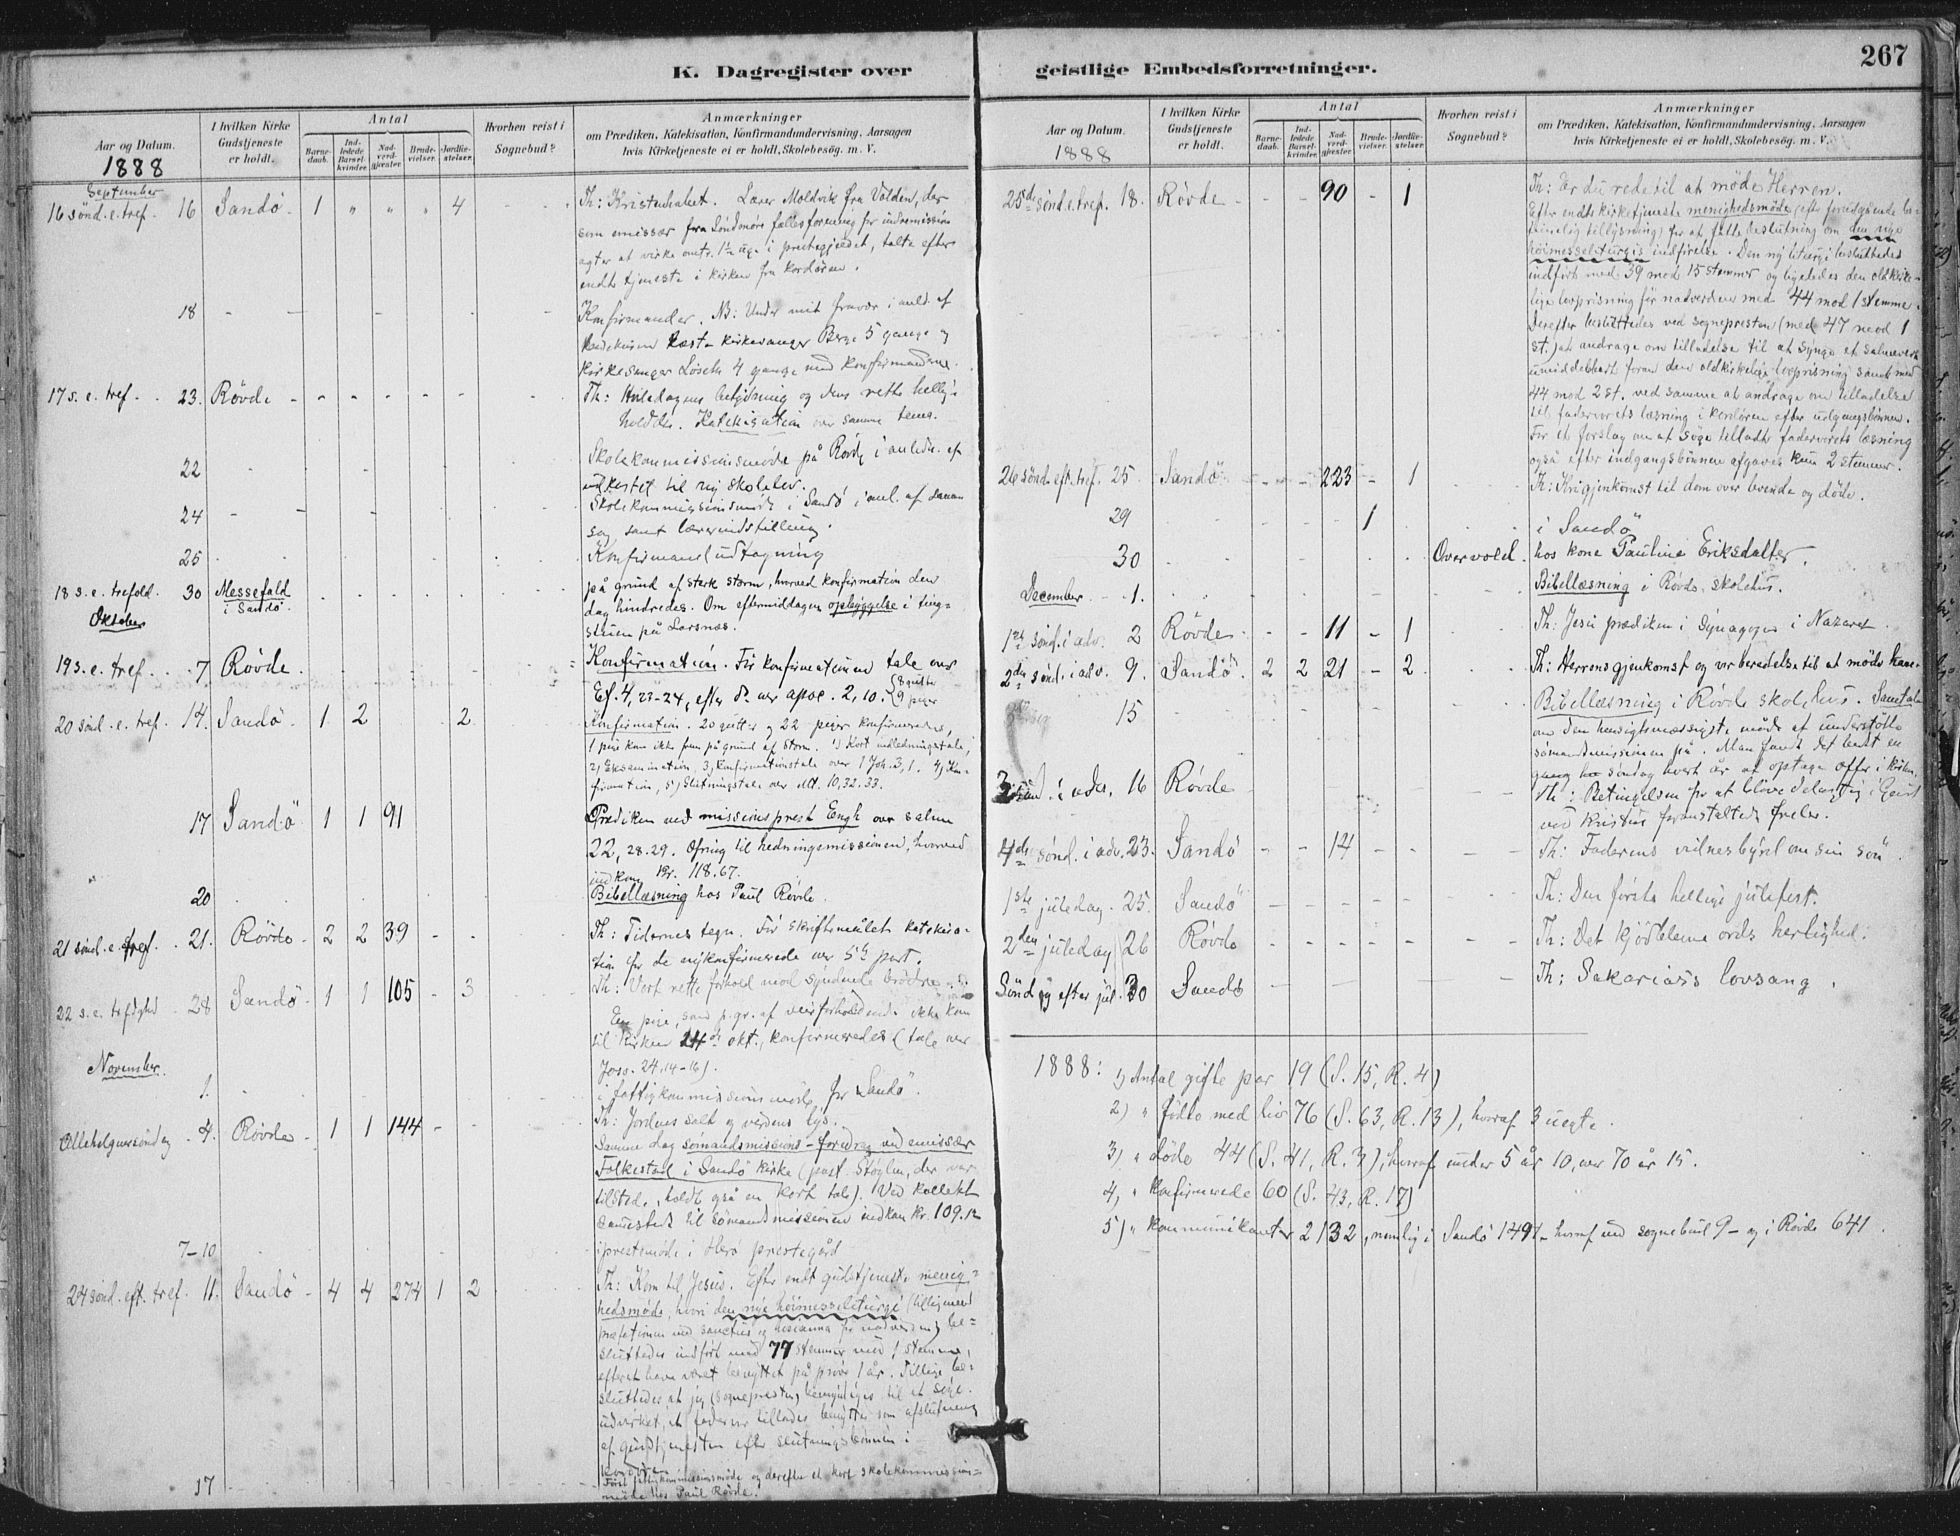 K. Dagregister over
Aar og Datum.
1888
I hvilken Kirke Gudstjeneste er holdt.
Antal
Barne-daab.
Ind-ledede Barsel-kvinder.
Nad-verd-gjester.
Brude-vielser.
Jordfæ-stelser.
Hvorhen reist i Sognebud?
Anmærkninger
om Prædiken, Katekisation, Konfirmandundervisning, Aarsagen
hvis Kirketjeneste ei er holdt, Skolebesøg. m. V.
September
16 sønd. e. tref. 16 Sandø 1 " " " 4 Th: Kristenhabet. Lærer Moldvik fra Volden, der
som emissær fra Söndmörs fællesforening for indremission
agter at virke omtr. 1½ uge i prestegjeldet, talte efter
endt tjeneste i kirken fra kordøren.
18 Konfirmander. NB: Under mit fravær i anled. af
læste kirkesanger Berge 5 gange og
kirkesanger Løseth 4 gange med konfirmanderne.
17 s. e. tref. 23. Røvde Th: Hviledagens betydning og dens rette hellig-
holdelse. Katekisation over samme tema.
22 Skolekommissionsmøde på Røvde i anledn. af
udkastet til ny skolelov.
24 Skolekommissionsmøde i Sandø i anl. af samme
sag, samt lærerindstilling.
25 Konfirmandudtagning
18 s. e. trefold. 30 Messefald i Sandø. på grund af sterk storm, hvorved konfirmation den
dag hindredes. Om eftermiddagen opbyggelse i ting-
stuen på Larsnæs.
Oktober
19 s. e. tref. 7 Røvde Konfirmation. Før konfirmationen tale over
Ef. 4, 23-24, efter do over apoc. 2, 10. 8 gutter 9 piger
20 sønd. e. tref. 14. Sandø 1 2 2 Konfirmation. 20 gutter og 22 piger konfirmeredes,
1 pige kom ikke frem på grund af storm. 1) Kort indledningstale,
2) Eksamination, 3) Konfirmationstale over 1 Joh. 3, 1. 4) Kon-
firmation, 5) Slutningstale over Mt. 10, 32. 33.
17 Sandø 1 1 91 Prediken ved missionsprest Engh over salme
22, 28. 29. Ofring til hedningemissionen, hvorved
indkom Kr. 118.67.
20 Bibellæsning hos Paul Røvde.
21 sønd. e. tref. 21. Røvde 2 2 39 Th: Tidernes tegn. Før skriftemålet katekisa-
tion for de nykonfirmerede over 5te part.
22 s. e. trefoldighed 28 Sandø 1 1 105 3 Th: Vort rette forhold mod syndende brødre.
En pige, som p. gr. af veirforholdene ikke kom
til kirken 14de okt., konfirmeredes (tale over
Jos. 24. 14-16).
November.
1. i fattigkommissionsmøde for Sandø.
Allehelgenssøndag 4. Røvde 1 1 144 Th: Jordens salt og verdens lys.
Samme dag sømandsmissions-foredrag ved emissær
Folkestad i Sandø kirke (past. Støylen, der var
tilsted, holdt også en kort tale). Ved kollekt
samesteds til sømandsmissionen indkom kr. 109.12
7-10 i prestemøde i Herø prestegård
24 sønd. eft. tref. 11. Sandø 4 4 274 1 2 Th: Kom til Jesus. Efter endt gudstjeneste menig-
hedsmøde, hvori den nye høimesseliturgi (tilligemed
præfationen med sanctus og hosianna før nadverden) be-
sluttedes indført med 77 stemmer mod 1 stemme,
efterat have været benyttet på prøve 1 år. Tillige be-
sluttedes at jeg (sognepresten) bemyndiges til at søge
udvirket, at fadervor tillades benyttet som afslutning
af gudstjenesten efter slutningsbønnen i
kordøren.
17 Først fattigkommissionsmøde og derefter et kort skolekommissions-
møde hos Paul Røvde.
geistlige Embedsforretninger.
267
Aar og Datum.
1888
I hvilken Kirke Gudstjeneste er holdt.
Antal
Barne-daab.
Ind-ledede Barsel-kvinder.
Nad-verd-gjester.
Brude-vielser.
Jordfæ-stelser.
Hvorhen reist i Sognebud?
Anmærkninger
om Prædiken, Katekisation, Konfirmandundervisning, Aarsagen
hvis Kirketjeneste ei er holdt, Skolebesøg. m. V.
25de sønd. e. tref. 18. Røvde 90 1 Th: Er du rede til at møde Herren.
Efter endt kirketjeneste menighedsmøde (efter foregående be-
timelig tillysning) for at fatte beslutning om den nye
høimesseliturgis indførelse. Den ny liturgi besluttedes
indført med 39 mod 15 stemmer og ligeledes den oldkirke-
lige lovprisning før nadverden med 44 mod 1 stemme.
Derefter besluttedes ved sognepresten (med 47 mod 1
st.) at andrage om tilladelse til at synge et salmevers
umiddelbart foran den oldkirkelige lovprisning samt med
44 mod 2 st. ved samme at andrage om tilladelse
til fadervorets læsning i kordøren efter udgangsbønnen.
For et forslag om at søge tilladt fadervorets læsning
også efter indgangsbønnen afgaves kun 2 stemmer.
26 sønd. eft. tref. 25 Sandø 223 1 Th: Kr. gjenkomst til dom over levende og døde.
29 1 i Sandø
30 Overvold hos kone Pauline Eriksdatter.
December 1. Bibellæsning i Røvde skolehus.
1ste sønd. i adv. 2 Røvde 11 1 Th: Jesu prædiken i Synagogen i Nazaret.
2den sønd. i adv. 9. Sandø 2 2 21 2 Th: Herrens gjenkomst og vor beredelse til at møde ham.
15 Bibellæsning i Røvde skolehus. Samtale
om den hensigtsmæssigste måde at understøtte
sømandsmissionen på. Man fandt det bedst en
gang søndag hvert år at optage offer i kirken.
3 sønd. i adv. 16 Røvde Th: Betingelsen for at blive delagtig i
ved Kristus foranstaltede frelse.
4de sønd. i adv. 23. Sandø 14 Th: Faderens vidnesbyrd om sin søn.
1ste juledag 25. Sandø Th: Den første hellige julefest.
2den juledag 26 Røvde Th: Det kjødblevne ords herlighed.
Søndag efter jul. 30 Sandø Th: Sakarias's lovsang.
1888: 1) Antal gifte par 19 (S. 15, R. 4)
2) " fødte med liv 76 (S. 63, R. 13), hvoraf 3 uegte.
3) " døde 44 (S. 41, R. 3), hvoraf under 5 år 10, over 70 år 15.
4) " konfirmerede 60 (S. 43, R. 17)
5) " kommunikanter 2132, nemlig i Sandø 1491 - hvoraf ved sognebud 9 - og i Røvde 641.